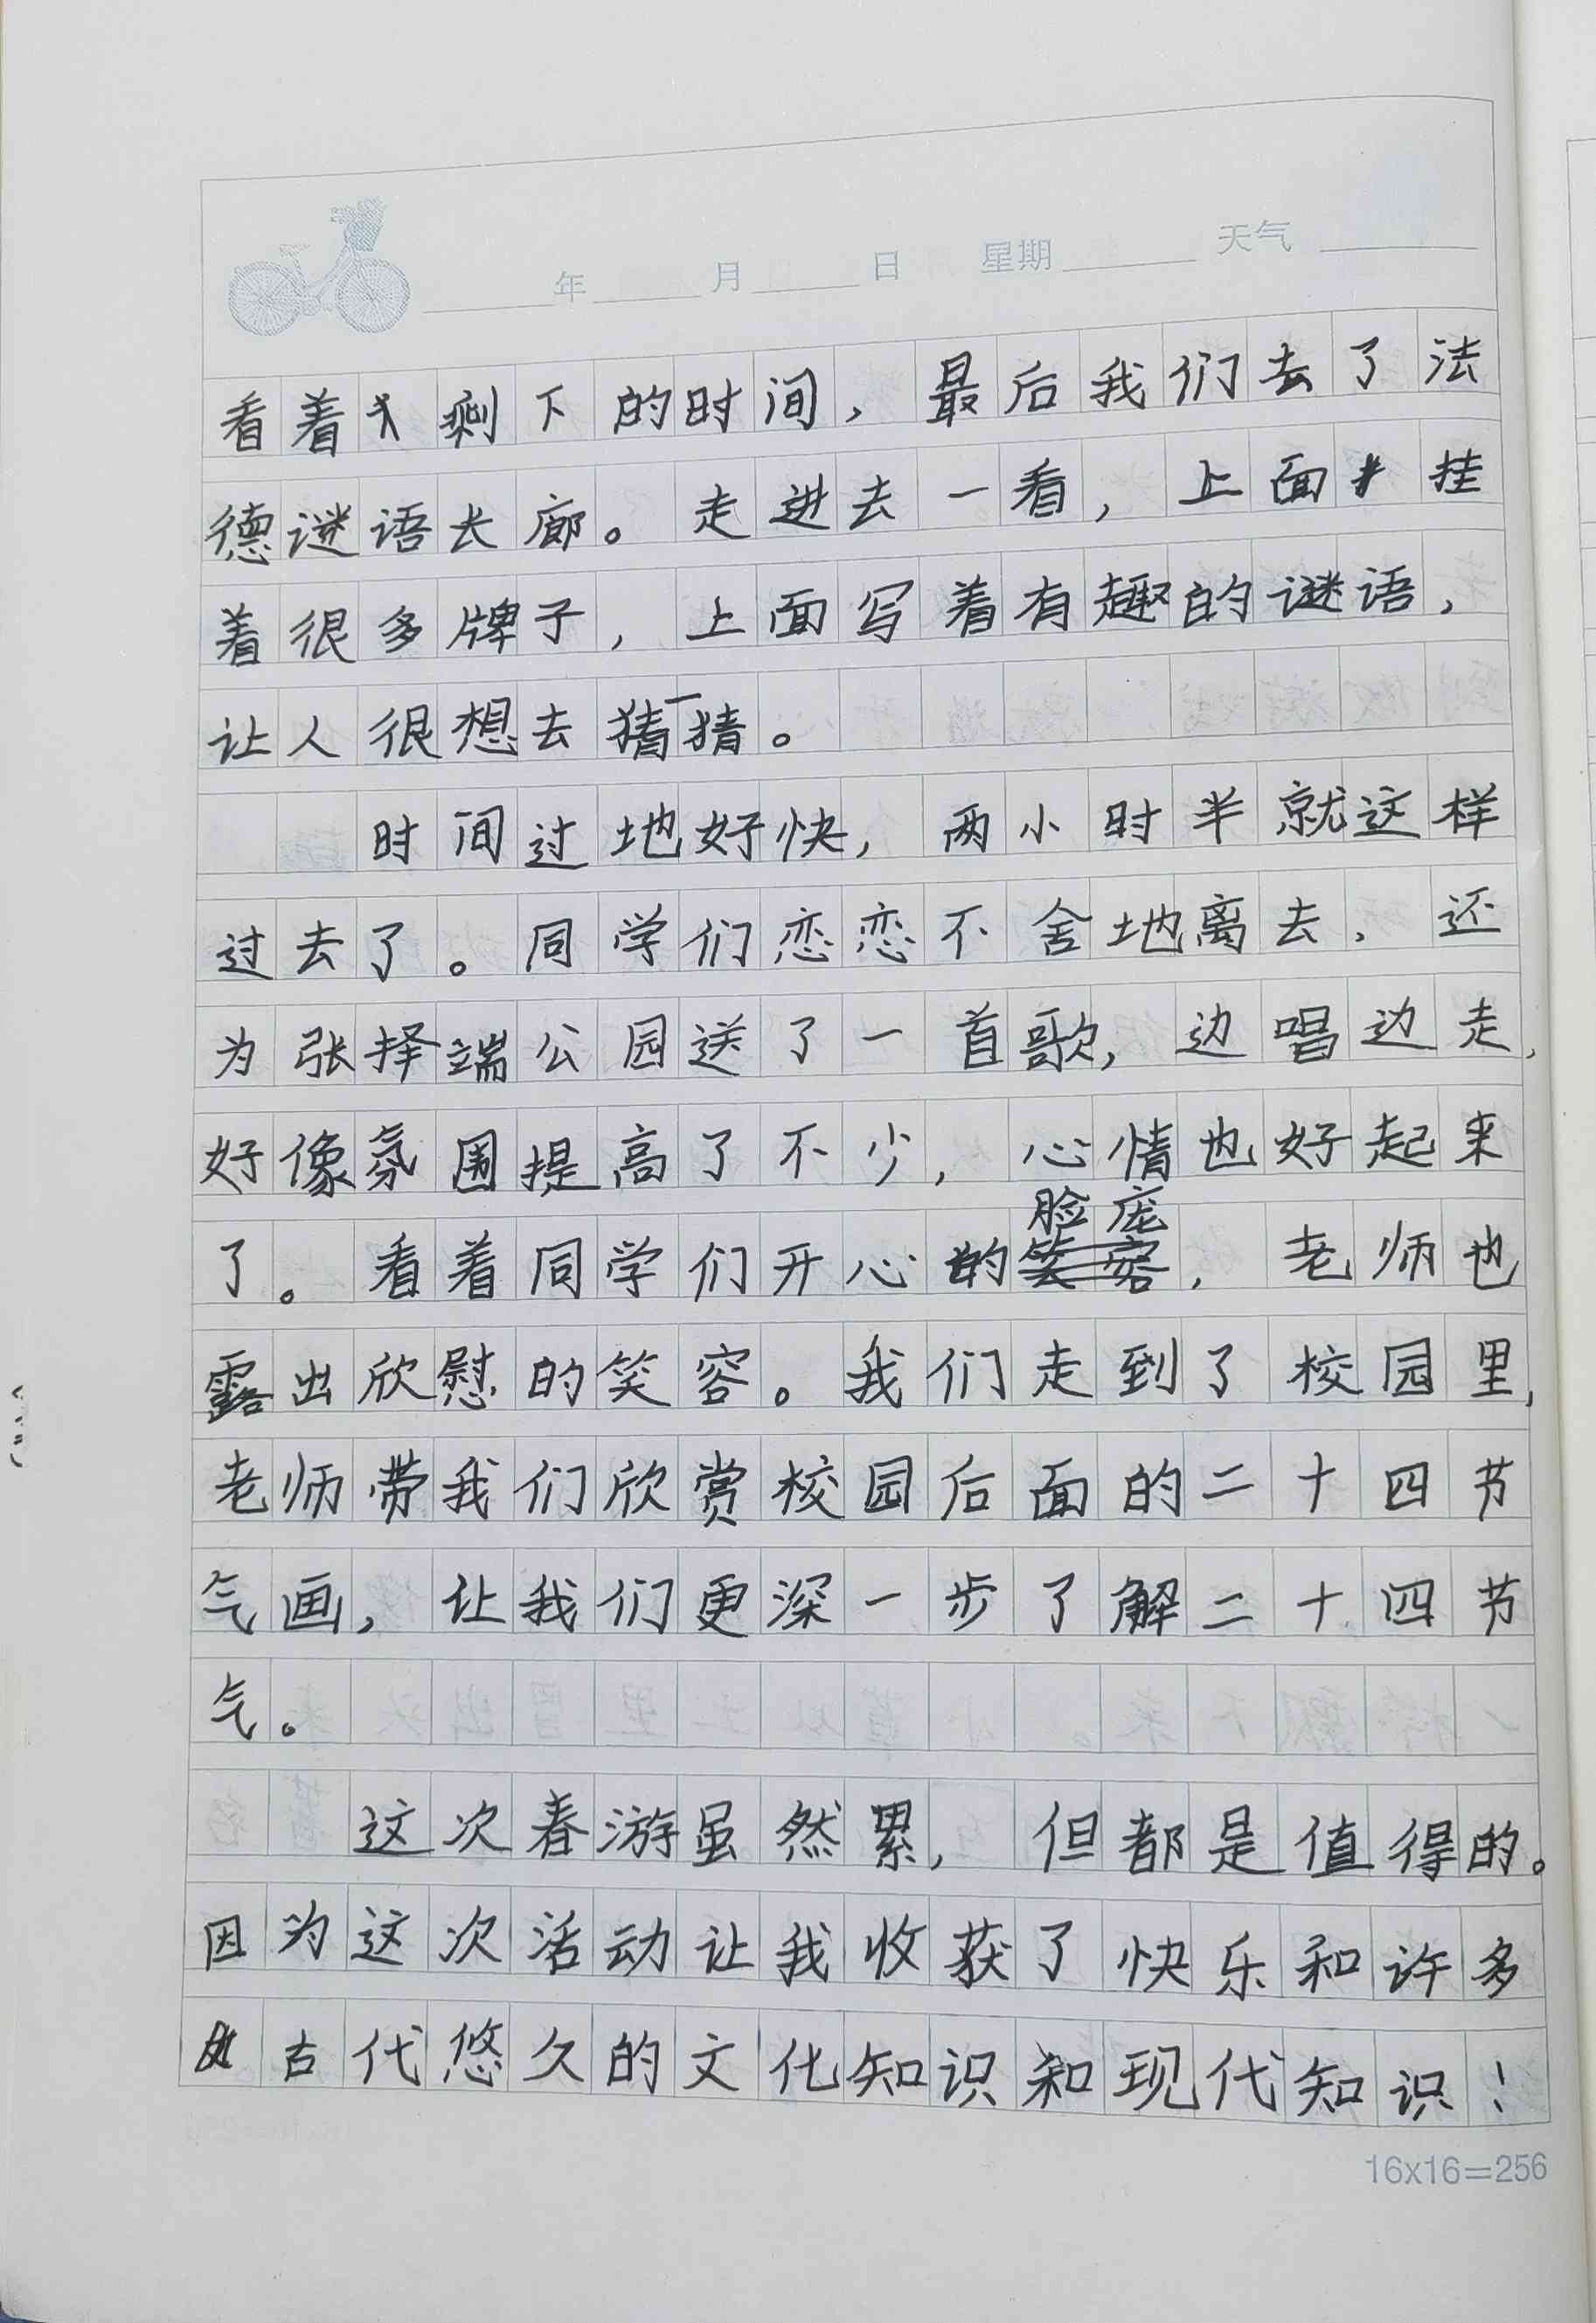 年 月 日 星期 天气
看着剩下的时间，最后我们去了法
德谜语长廊。走进去一看，上面挂
着很多牌子，上面写着有趣的谜语，
让人很想去猜一猜。
时间过地好快，两小时半就这样
过去了。同学们恋恋不舍地离去，还
为张择端公园送了一首歌，边唱边走，
好像氛围提高了不少，心情也好起来
了。看着同学们开心的脸庞，老师也
露出欣慰的笑容。我们走到了校园里，
老师带我们欣赏校园后面的二十四节
气画，让我们更深一步了解二十四节
气。
这次春游虽然累，但都是值得的。
因为这次活动让我收获了快乐和许多
古代悠久的文化知识和现代知识！
16x16=256